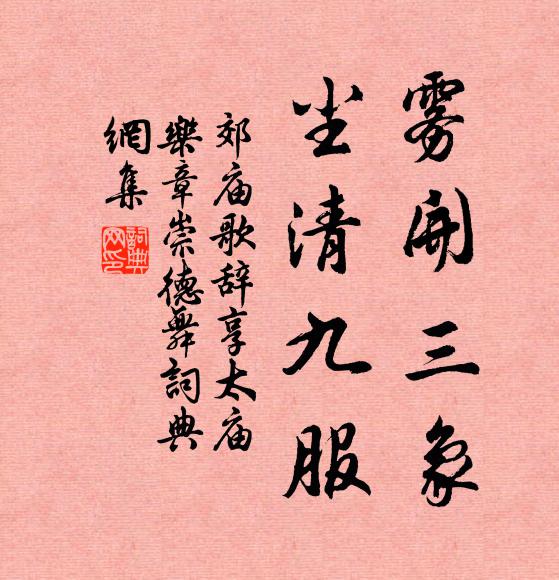 雾开三象
尘清九服
郊庙歌辞享太庙
樂章崇德舞詞典
網集
詞典网印